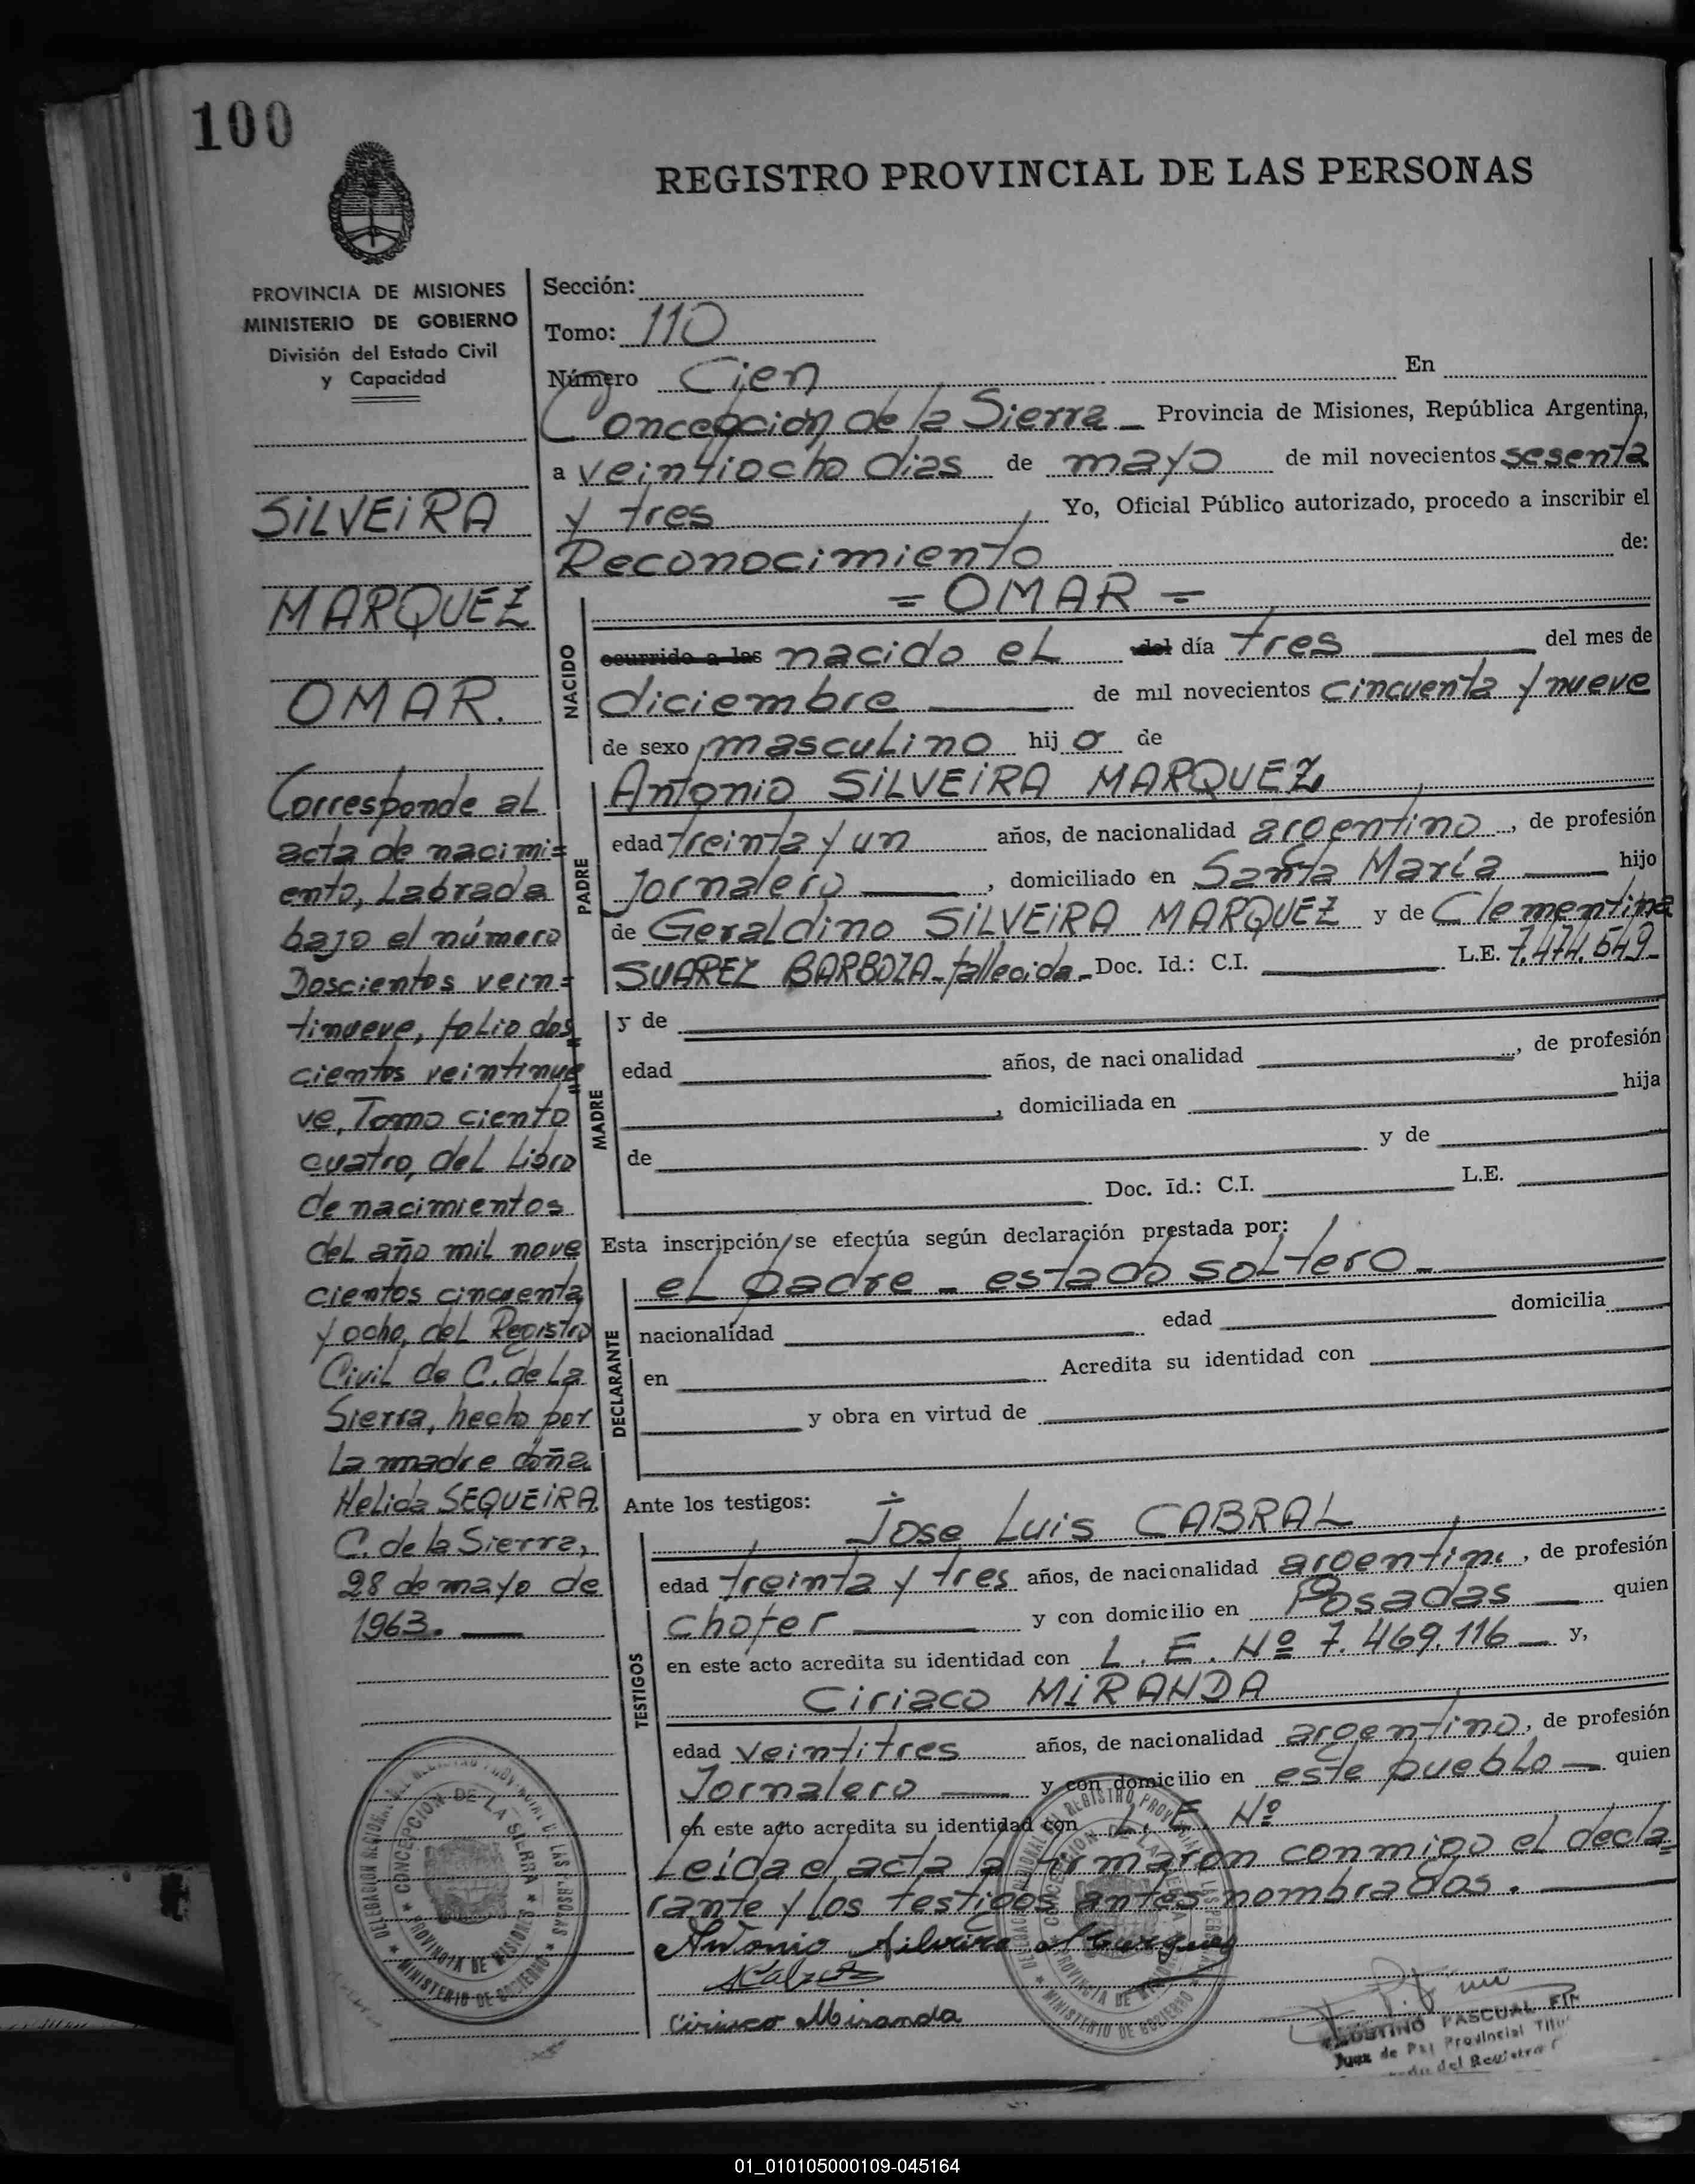 100
REGISTRO PROVINCIAL DE LAS PERSONAS
PROVINCIA DE MISIONES
MINISTERIO DE GOBIERNO
División del Estado Civil
y Capacidad
SILVEIRA
MARQUEZ
OMAR.
Corresponde al
acta de nacimi=
ento, Labrada
bajo el número
Doscientos vein=
tinueve, folio dos
cientos veintinue
ve, Tomo ciento
cuatro, del Libro
de nacimientos
del año mil nove
cientos cincuenta
y ocho, del Registro
Civil de C. de La
Sierra, hecho por
La madre doña
Helida SEQUEIRA.
C. de la Sierra,
28 de mayo de
1963.
Sección:
Tomo: 110
Número Cien En
Concepción de la Sierra Provincia de Misiones, República Argentina,
a veintiocho dias de mayo de mil novecientos sesenta
y tres Yo, Oficial Público autorizado, procedo a inscribir el
Reconocimiento de:
= OMAR =
NACIDO
ocurrido a las nacido el del día tres del mes de
diciembre de mil novecientos cincuenta y nueve
de sexo masculino hijo de
PADRE
Antonio SILVEIRA MARQUEZ
edad treinta y un años, de nacionalidad argentino, de profesión
Jornalero, domiciliado en Santa María hijo
de Geraldino SILVEIRA MARQUEZ y de Clementina
SUAREZ BARBOZA-fallecida- Doc. Id.: C.I. L.E. 7.474.549-
MADRE
y de
edad años, de nacionalidad, de profesión
, domiciliada en hija
de y de
Doc. Id.: C.I. L.E.
Esta inscripción se efectúa según declaración prestada por:
DECLARANTE
el padre - estado soltero -
nacionalidad edad domicilia
en Acredita su identidad con
y obra en virtud de
Ante los testigos:
TESTIGOS
Jose Luis CABRAL
edad treinta y tres años, de nacionalidad argentino, de profesión
chofer y con domicilio en Posadas quien
en este acto acredita su identidad con L.E. Nº 7.469.116 y,
Ciriaco MIRANDA
edad veintitres años, de nacionalidad argentino, de profesión
Jornalero y con domicilio en este pueblo quien
en este acto acredita su identidad con L.E. Nº
Leida el acta la firmaron conmigo el decla=
rante y los testigos antes nombrados.
Antonio Silveira Marquez
Ciriaco Miranda
DELEGACION REGIONAL DEL REGISTRO PROVINCIAL DE LAS PERSONAS
CONCEPCION DE LA SIERRA
PROVINCIA DE MISIONES
MINISTERIO DE GOBIERNO
DELEGACION REGIONAL DEL REGISTRO PROVINCIAL DE LAS PERSONAS
CONCEPCION DE LA SIERRA
PROVINCIA DE MISIONES
MINISTERIO DE GOBIERNO
PASCUAL
Juez de Paz Provincial
del Registro
01_010105000109-045164